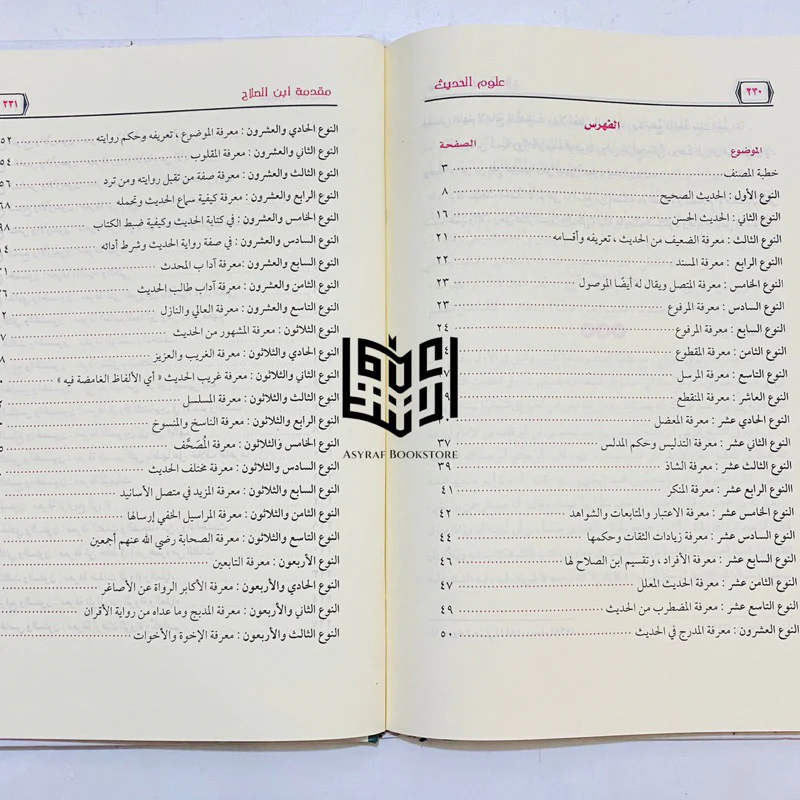 ٢٣٠
علوم الحديث
الفهرس
الموضوع الصفحة
خطبة المصنف ٣
النوع الأول : الحديث الصحيح ٨
النوع الثاني : الحديث الحسن ١٦
النوع الثالث : معرفة الضعيف من الحديث ، تعريفه وأقسامه ٢١
االنوع الرابع : معرفة المسند ٢٢
النوع الخامس : معرفة المتصل ويقال له أيضًا الموصول ٢٣
النوع السادس : معرفة المرفوع ٢٣
النوع السابع : معرفة المرفوع ٢٤
النوع الثامن : معرفة المقطوع
النوع التاسع : معرفة المرسل
النوع العاشر : معرفة المنقطع
النوع الحادي عشر : معرفة المعضل
النوع الثاني عشر : معرفة التدليس وحكم المدلس ٣٧
النوع الثالث عشر : معرفة الشاذ ٣٩
االنوع الرابع عشر : معرفة المنكر ٤١
النوع الخامس عشر : معرفة الاعتبار والمتابعات والشواهد ٤٢
النوع السادس عشر : معرفة زيادات الثقات وحكمها ٤٤
النوع السابع عشر : معرفة الأفراد ، وتقسيم ابن الصلاح لها ٤٦
النوع الثامن عشر : معرفة الحديث المعلل ٤٧
النوع التاسع عشر : معرفة المضطرب من الحديث ٤٩
النوع العشرون : معرفة المدرج في الحديث ٥٠
مقدمة ابن الصلاح
٢٣١
النوع الحادي والعشرون : معرفة الموضوع ، تعريفه وحكم روايته ٥٢
النوع الثاني والعشرون : معرفة المقلوب ٥٤
النوع الثالث والعشرون : معرفة صفة من تقبل روايته ومن ترد ٥٦
النوع الرابع والعشرون : معرفة كيفية سماع الحديث وتحمله ٦٨
النوع الخامس والعشرون : في كتابة الحديث وكيفية ضبط الكتاب
النوع السادس والعشرون : في صفة رواية الحديث وشرط أدائه
النوع السابع والعشرون :معرفة آداب المحدث
النوع الثامن والعشرون : معرفة آداب طالب الحديث
النوع التاسع والعشرون : معرفة العالي والنازل
النوع الثلاثون : معرفة المشهور من الحديث
النوع الحادي والثلاثون : معرفة الغريب والعزيز
النوع الثاني والثلاثون : معرفة غريب الحديث « أي الألفاظ الغامضة فيه »
النوع الثالث والثلاثون : معرفة المسلسل
النوع الرابع والثلاثون : معرفة الناسخ والمنسوخ
النوع الخامس والثلاثون : معرفة المُصَحَّف
النوع السادس والثلاثون : معرفة مختلف الحديث
النوع السابع والثلاثون : معرفة المزيد في متصل الأسانيد
النوع الثامن والثلاثون : معرفة المراسيل الخفي إرسالها
النوع التاسع والثلاثون : معرفة الصحابة رضي الله عنهم أجمعين
النوع الأربعون : معرفة التابعين
النوع الحادي والأربعون : معرفة الأكابر الرواة عن الأصاغر
النوع الثاني والأربعون : معرفة المدبج وما عداه من رواية الأقران
النوع الثالث والأربعون : معرفة الإخوة والأخوات
ASYRAF BOOKSTORE